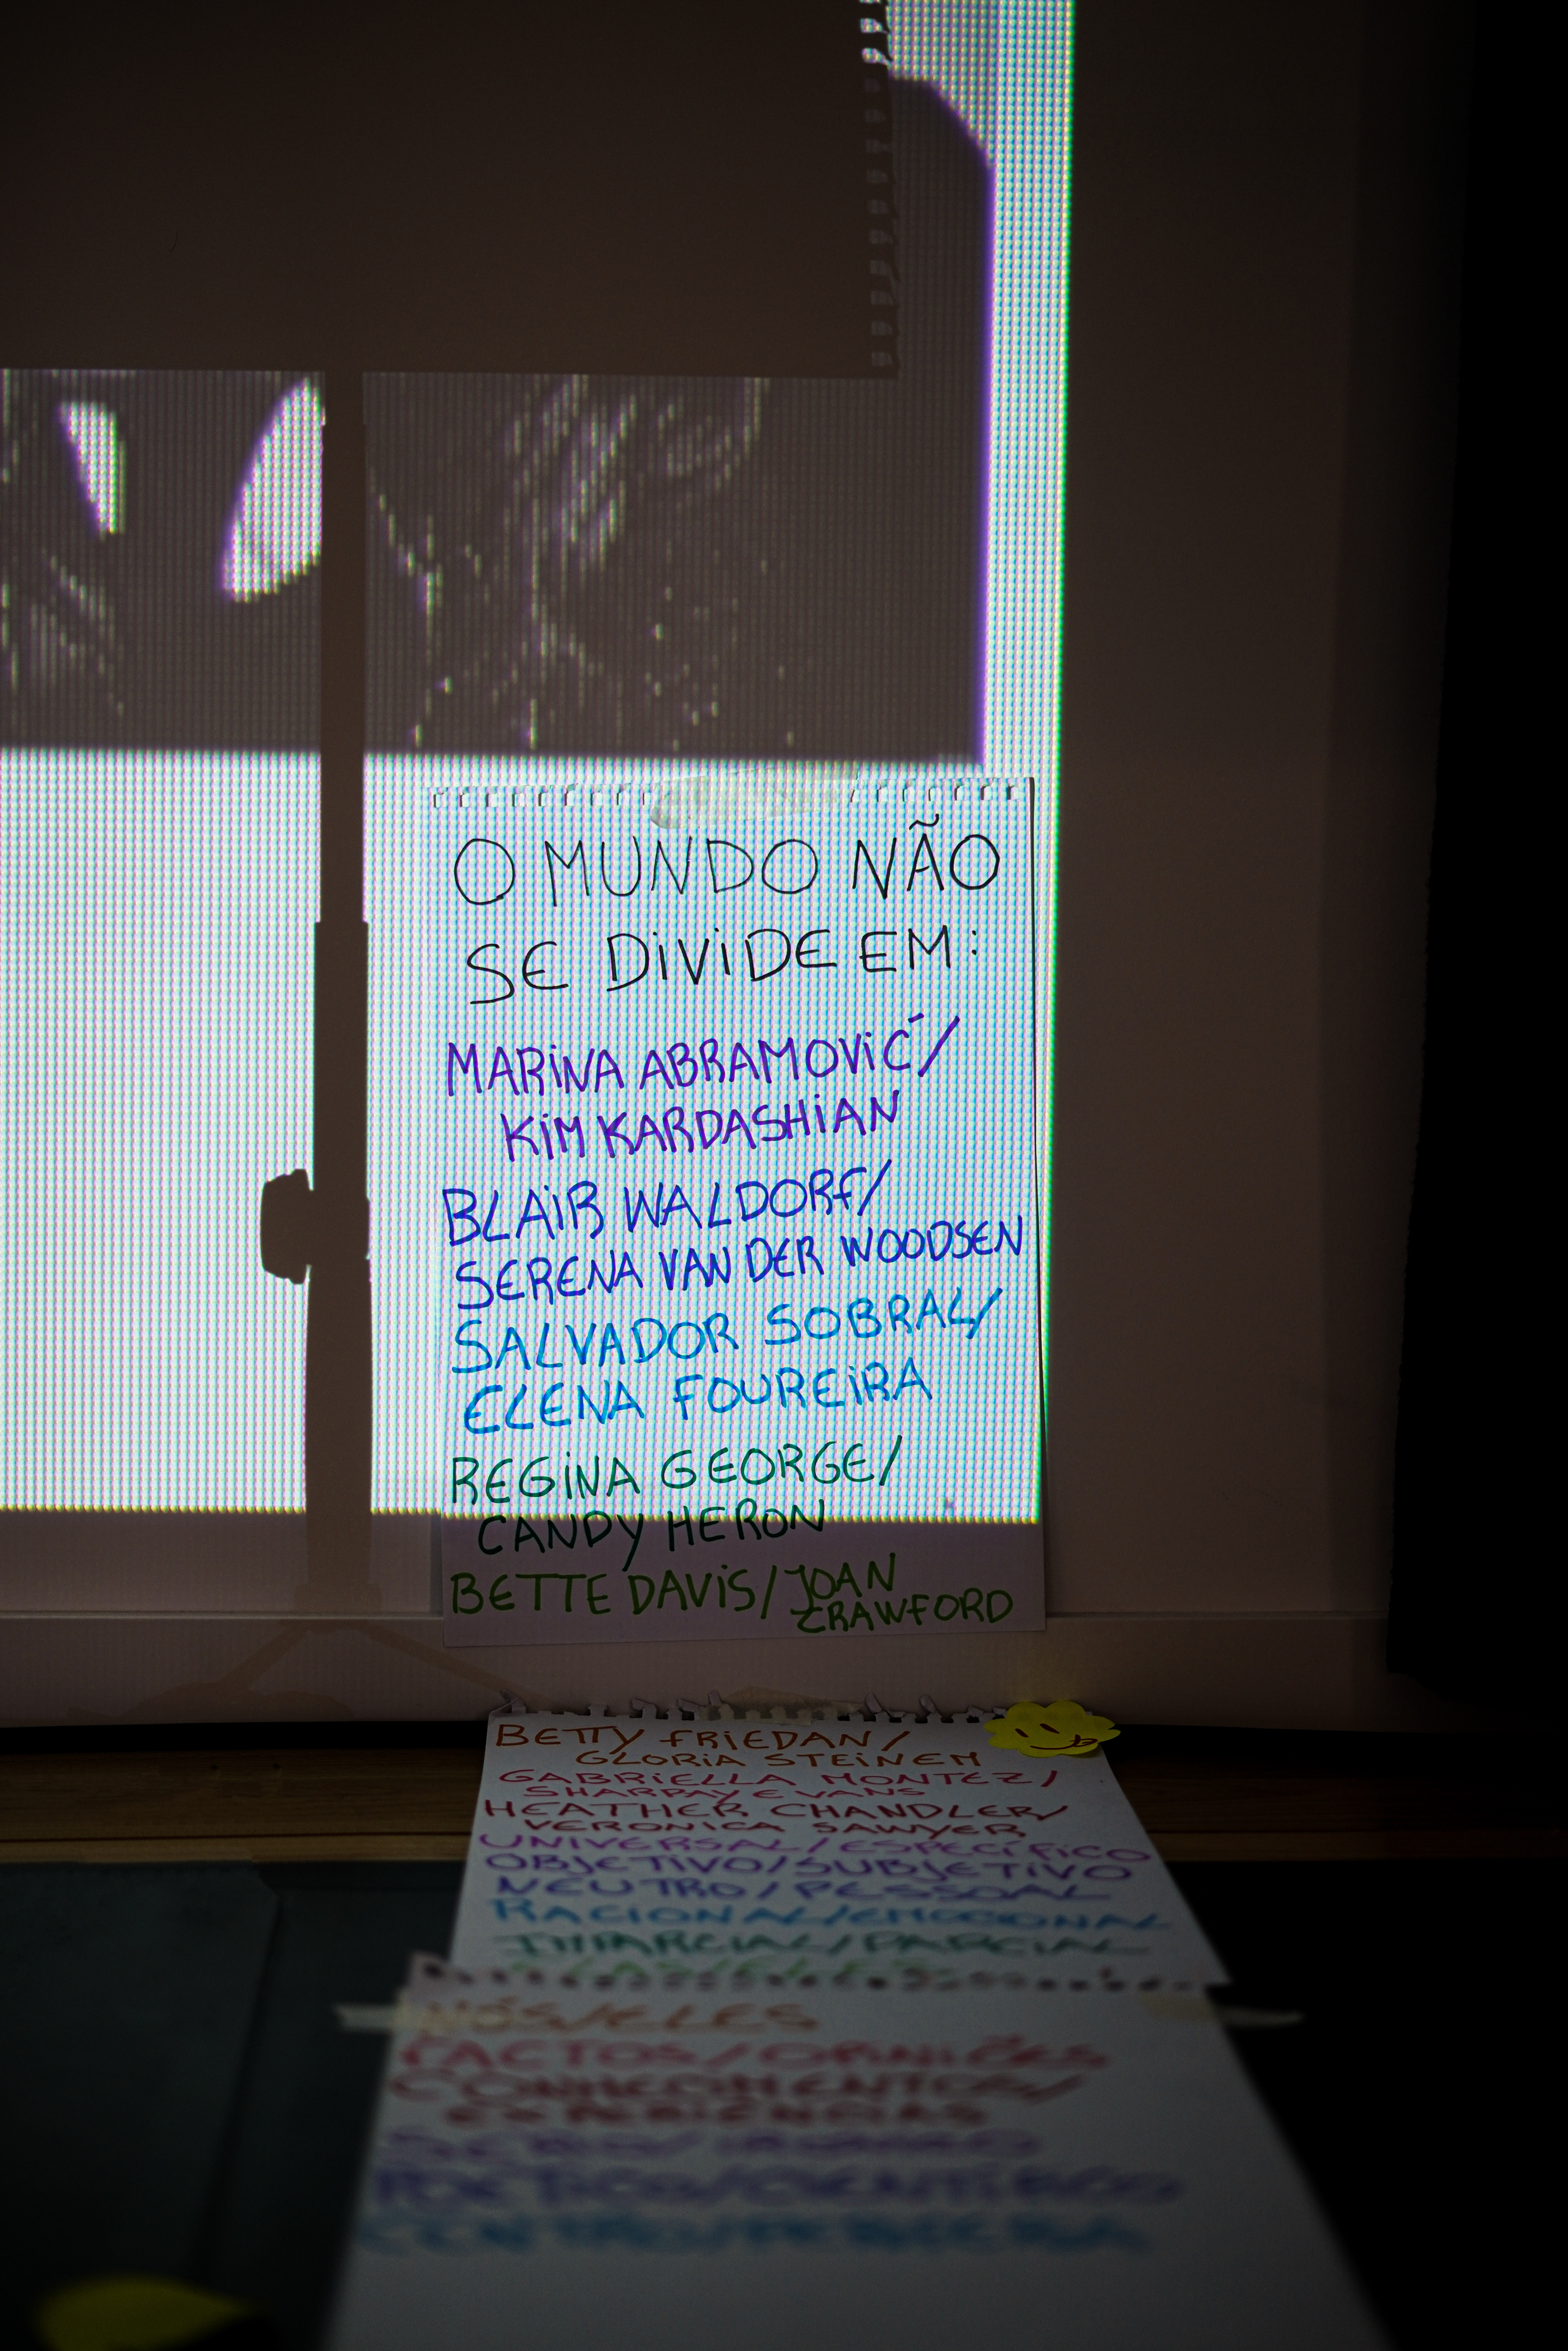 O MUNDO NÃO
SE DIVIDE EM:
MARINA ABRAMOVIĆ/
KIM KARDASHIAN
BLAIR WALDORF/
SERENA VAN DER WOODSEN
SALVADOR SOBRAL/
ELENA FOUREIRA
REGINA GEORGE/
CANDY HERON
BETTE DAVIS/JOAN
CRAWFORD
BETTY FRIEDAN/
GLORIA STEINEM
GABRIELLA MONTEZ/
SHARPAY EVANS
HEATHER CHANDLER/
VERONICA SAWYER
UNIVERSAL/ESPECÍFICO
OBJETIVO/SUBJETIVO
NEUTRO/PESSOAL
RACIONAL/EMOCIONAL
IMPARCIAL/PARCIAL
NÓS/ELES
FACTOS/OPINIÕES
CONHECIMENTOS/
EXPERIÊNCIAS